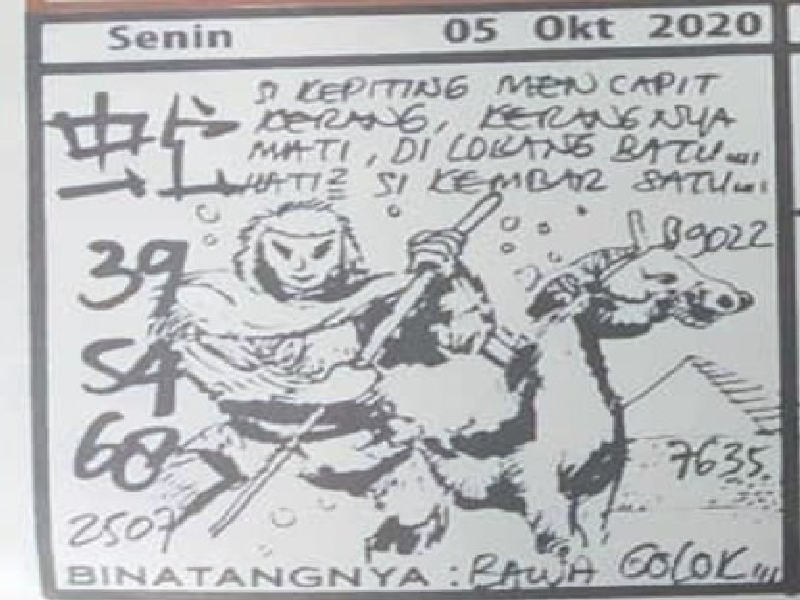 Senin 05 Okt 2020
蛇 SI KEPITING MENCAPIT
KERANG, KERANGNYA
MATI, DI LOBANG BATU....
HATI2 SI KEMBAR SATU....
9022
39
54
68
7635
2507
BINATANGNYA : RAWA GOLOK,,,